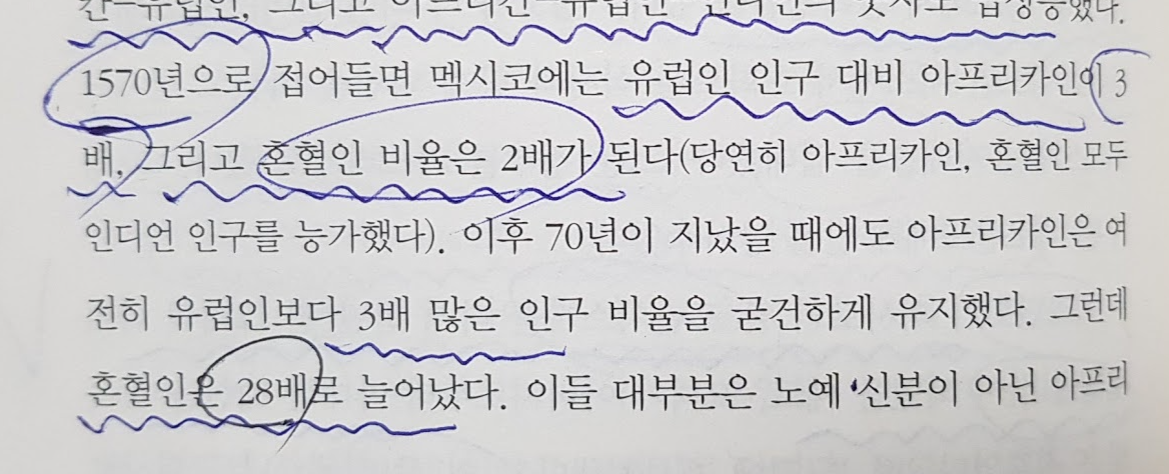 1570년으로 접어들면 멕시코에는 유럽인 인구 대비 아프리카인이 3
배, 그리고 혼혈인 비율은 2배가 된다(당연히 아프리카인, 혼혈인 모두
인디언 인구를 능가했다). 이후 70년이 지났을 때에도 아프리카인은 여
전히 유럽인보다 3배 많은 인구 비율을 굳건하게 유지했다. 그런데
혼혈인은 28배로 늘어났다. 이들 대부분은 노예 신분이 아닌 아프리